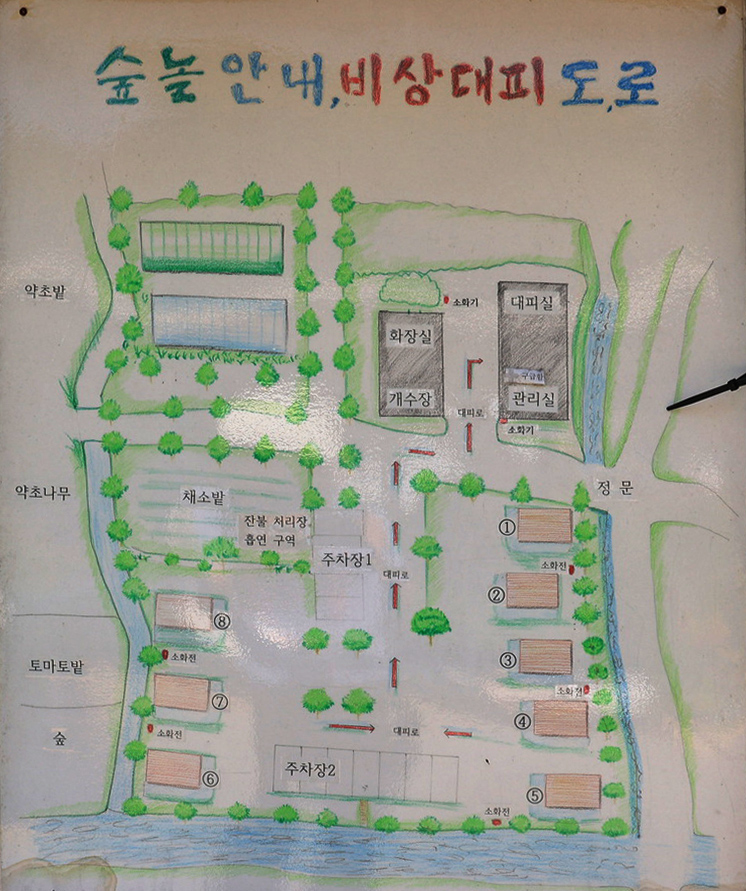 숲놀 안내, 비상대피 도,로
약초밭
소화기
대피실
화장실
구급함
개수장
대피로
관리실
소화기
약초나무
채소밭
정 문
잔불 처리장
흡연 구역
①
주차장1
소화전
대피로
②
⑧
소화전
③
토마토밭
소화전
⑦
④
숲
소화전
대피로
주차장2
⑥
⑤
소화전